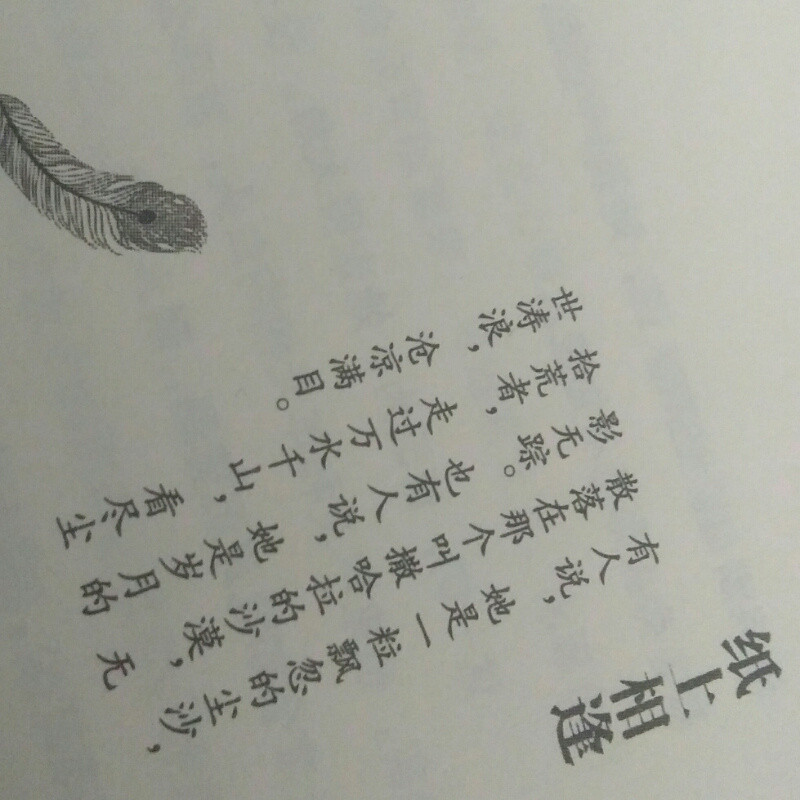 纸上相逢
有人说，她是一粒飘忽的尘沙，
散落在那个叫撒哈拉的沙漠，无
影无踪。也有人说，她是岁月的
拾荒者，走过万水千山，看尽尘
世涛浪，沧凉满目。